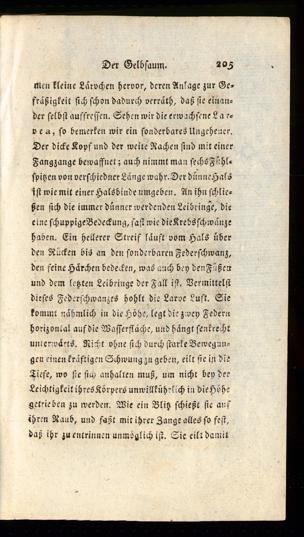 Der Gelbsaum. 205
men kleine Lärvchen hervor, deren Anlage zur Ge-
fräßigkeit sich schon dadurch verräth, daß sie einan-
der selbst auffressen. Sehen wir die erwachsene Lar-
vea, so bemerken wir ein sonderbares Ungeheuer.
Der dicke Kopf und der weite Rachen sind mit einer
Fangzange bewaffnet; auch nimmt man sechs Fühl-
spitzen von verschiedner Länge wahr. Der dünne Hals
ist wie mit einer Halsbinde umgeben. An ihn schlie-
ßen sich die immer dünner werdenden Leibringe, die
eine schuppige Bedeckung, fast wie die Krebsschwänze
haben. Ein hellerer Streif läuft vom Hals über
den Rücken bis an den sonderbaren Federschwanz,
den feine Härchen bedecken, was auch bey den Füßen
und dem letzten Leibringe der Fall ist. Vermittelst
dieses Federschwanzes hohlt die Larve Luft. Sie
kommt nähmlich in die Höhe, legt die zwey Federn
horizontal auf die Wasserfläche, und hängt senkrecht
unterwärts. Nicht ohne sich durch starke Bewegun-
gen einen kräftigen Schwung zu geben, eilt sie in die
Tiefe, wo sie sich anhalten muß, um nicht bey der
Leichtigkeit ihres Körpers unwillkührlich in die Höhe
getrieben zu werden. Wie ein Blitz schießt sie auf
ihren Raub, und faßt mit ihrer Zange alles so fest,
daß ihr zu entrinnen unmöglich ist. Sie eilt damit